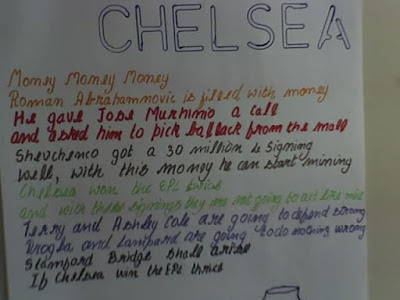 CHELSEA
Money Money Money
Roman Abrahammovic is filled with money
He gave Jose Murhinio a call
and asked him to pick ballack from the mall
Shevchenco got a 30 million £ signing
Well, with this money he can start mining
Chelsea won the EPL twice
and with these signings they are not going to act like mice
Terry and Ashley Cole are going to defend strong
Drogba and Lampard are going to do nothing wrong
Stamford Bridge shall arise
If Chelsea win the EPL thrice